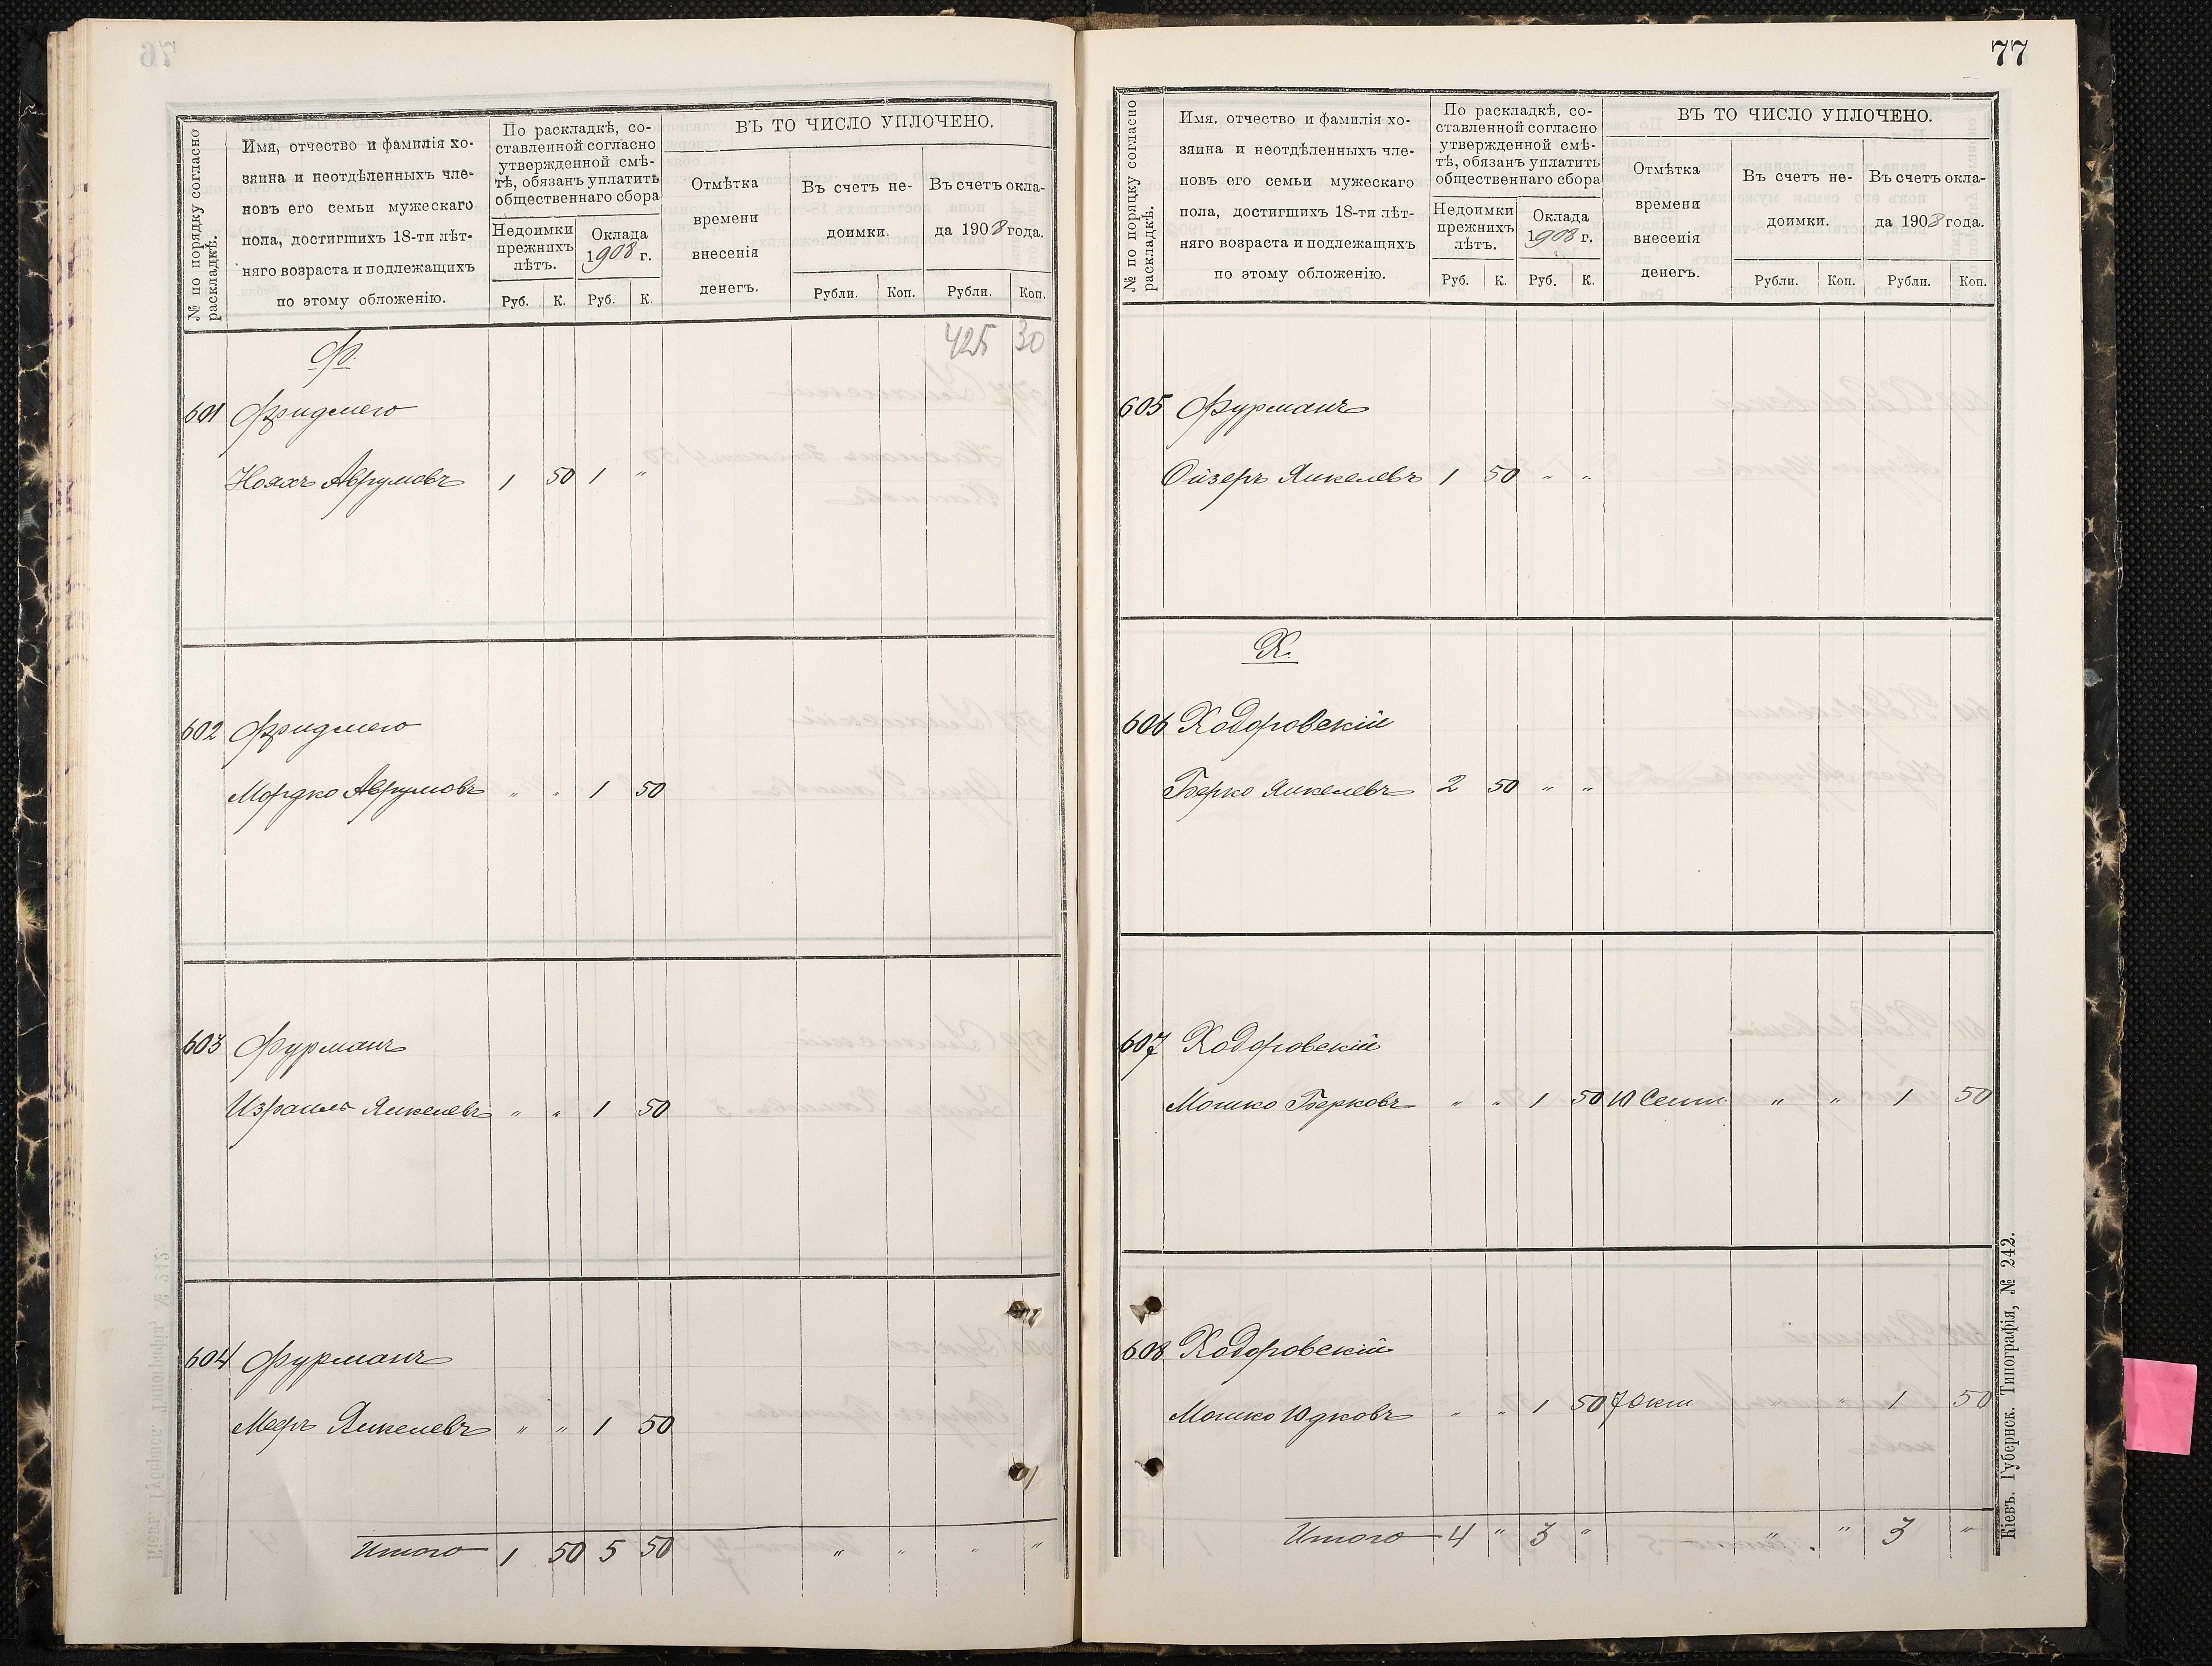 № по порядку согласно раскладкѣ.
Имя, отчество и фамилія хо-
зяина и неотдѣленныхъ чле-
новъ его семьи мужескаго
пола, достигшихъ 18-ти лѣт-
няго возраста и подлежащихъ
по этому обложенію.
По раскладкѣ, со-
ставленной согласно
утвержденной смѣ-
тѣ, обязанъ уплатить
общественнаго сбора
Недоимки
прежнихъ
лѣтъ.
Оклада
1908 г.
Руб. К. Руб. К.
ВЪ ТО ЧИСЛО УПЛОЧЕНО.
Отмѣтка
времени
внесенія
денегъ.
Въ счетъ не-
доимки.
Въ счетъ окла-
да 1908 года.
Рубли. Коп. Рубли. Коп.
425 30
Ф.
601 Фридметъ
Ноахъ Аврумовъ 1 50 1 "
602 Фридметъ
Мордко Аврумовъ " " 1 50
603 Фурманъ
Израиль Янкелевъ " " 1 50
604 Фурманъ
Мееръ Янкелевъ " " 1 50
Итого 1 50 5 50 " " " "
77
№ по порядку согласно раскладкѣ.
Имя. отчество и фамилія хо-
зяина и неотдѣленныхъ чле-
новъ его семьи мужескаго
пола, достигшихъ 18-ти лѣт-
няго возраста и подлежащихъ
по этому обложенію.
По раскладкѣ, со-
ставленной согласно
утвержденной смѣ-
тѣ, обязанъ уплатить
общественнаго сбора
Недоимки
прежнихъ
лѣтъ.
Оклада
1908 г.
Руб. К. Руб. К.
ВЪ ТО ЧИСЛО УПЛОЧЕНО.
Отмѣтка
времени
внесенія
денегъ.
Въ счетъ не-
доимки.
Въ счетъ окла-
да 1908 года.
Рубли. Коп. Рубли. Коп.
605 Фурманъ
Ойзеръ Янкелевъ 1 50 " "
Х.
606 Ходоровскій
Берко Янкелевъ 2 50 " "
607 Ходоровскій
Мошко Берковъ " " 1 50 10 Сент. " " 1 50
608 Ходоровскій
Мошко Юдковъ " " 1 50 7 Окт " " 1 50
Итого 4 " 3 " " " 3 "
Кіевъ. Губернск. Типографія, № 242.